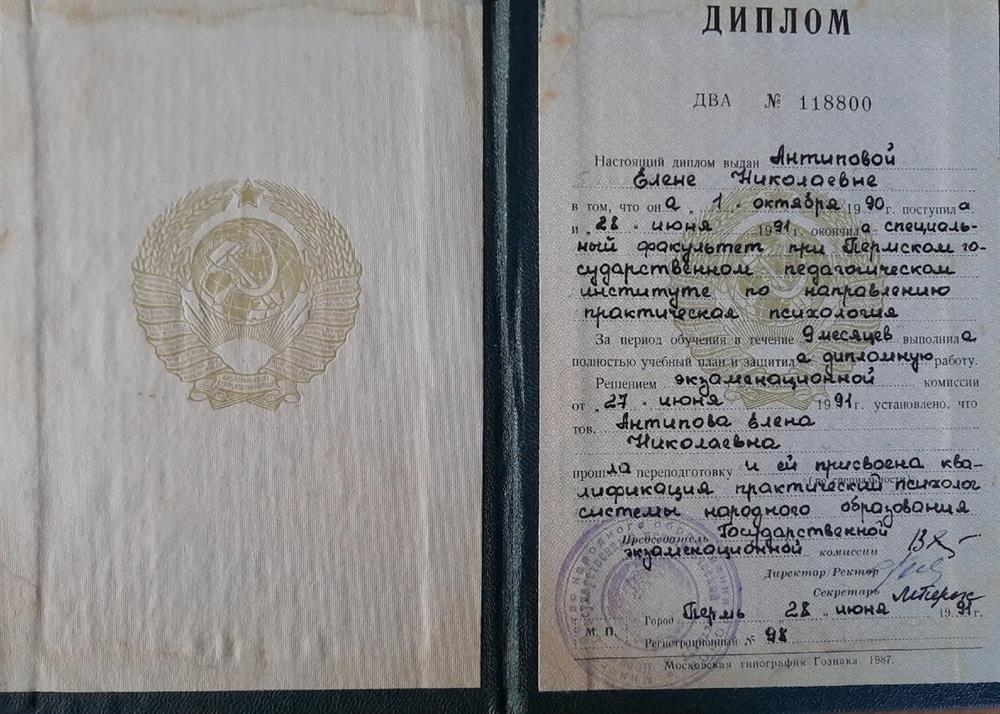 ДИПЛОМ
ДВА № 118800
Настоящий диплом выдан Антиповой
Елене Николаевне
в том, что она „ 1 " октября 1990 г. поступила
и „ 28 " июня 1991 г. окончила специаль-
ный факультет при Пермском го-
сударственном педагогическом
институте по направлению
практическая психология
За период обучения в течение 9 месяцев выполнила
полностью учебный план и защитила дипломную работу.
Решением экзаменационной комиссии
от „ 27 " июня 1991 г. установлено, что
тов. Антипова Елена
Николаевна
прошла переподготовку и ей присвоена ква-
(по специальности)
лификация практический психолог
системы народного образования
Председатель Государственной
экзаменационной комиссии
Директор/Ректор
Секретарь
Город Пермь „ 28 " июня 1991 г.
М. П. Регистрационный № 98
Московская типография Гознака 1987.